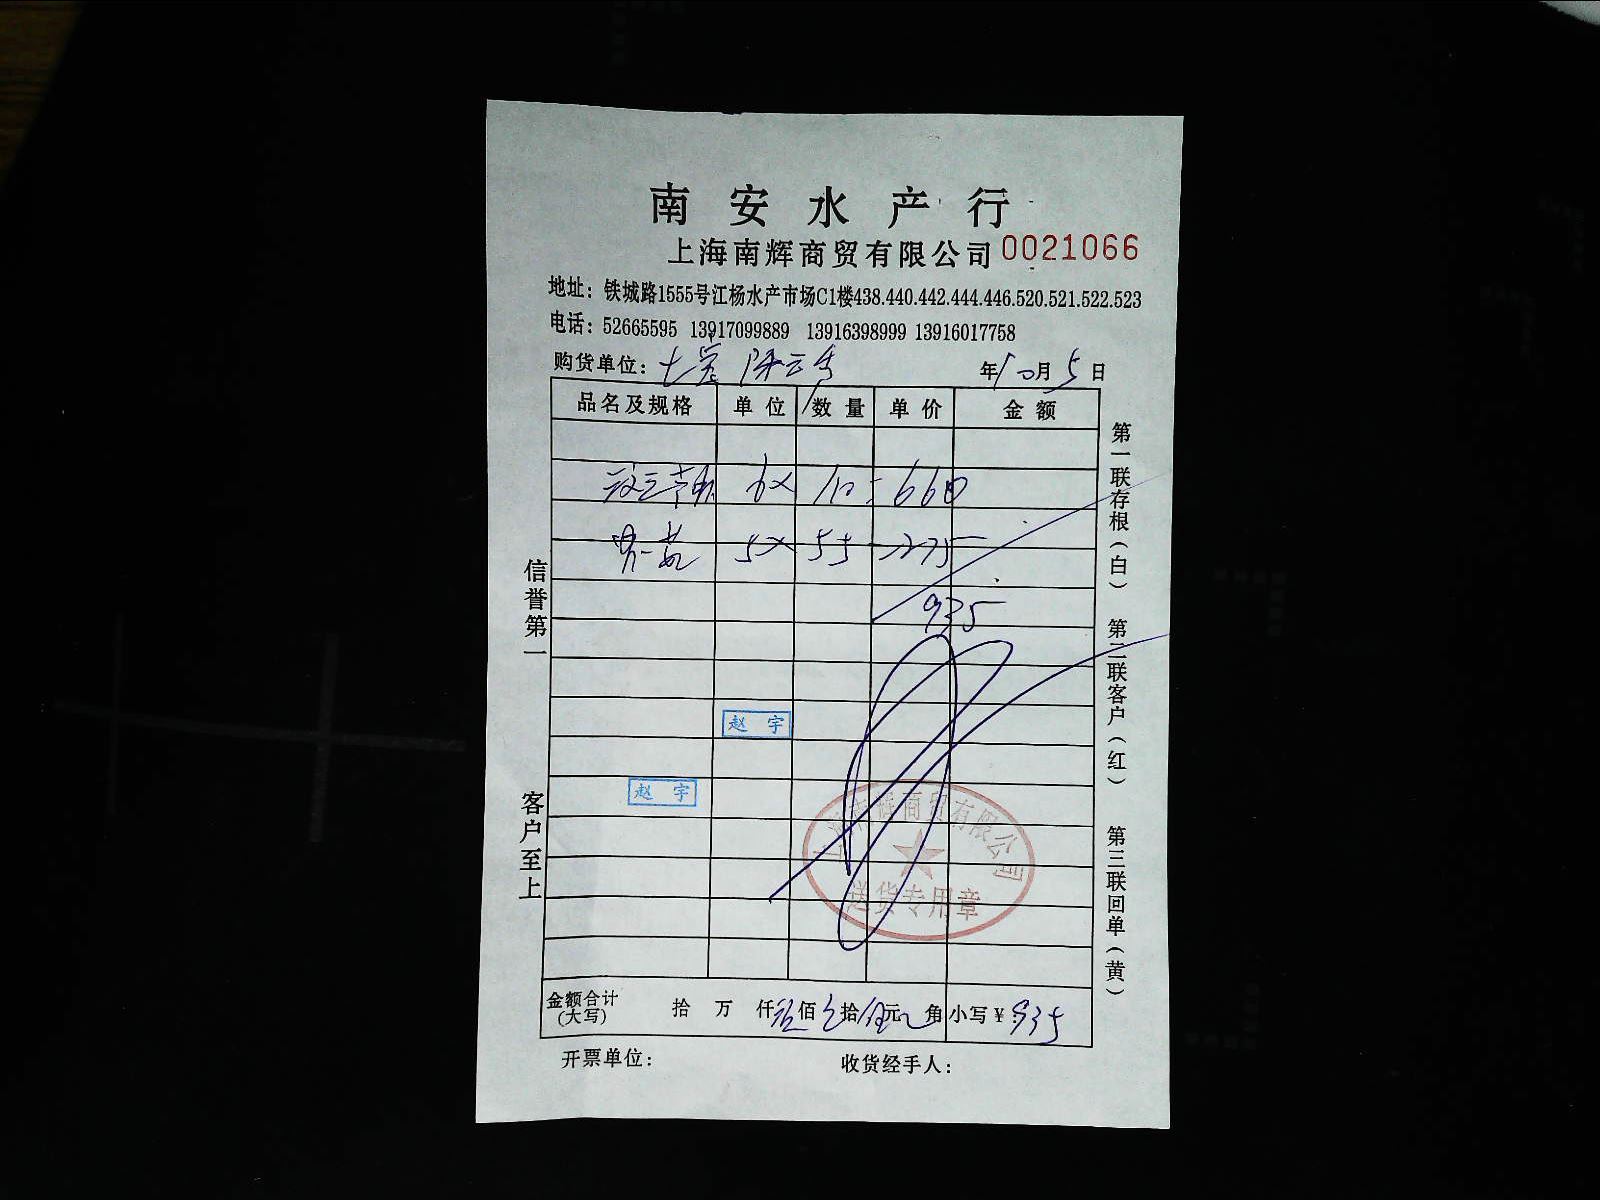 南安水产行
上海南辉商贸有限公司 0021066
地址：铁城路1555号江杨水产市场C1楼438.440.442.444.446.520.521.522.523
电话：52665595 13917099889 13916398999 13916017758
购货单位： 年10月5日
品名及规格 单位 数量 单价 金额
6× 110=660
5× 55 275
935
赵宇
赵宇
上海南辉商贸有限公司
送货专用章
金额合计(大写) 拾 万 仟 佰 拾 元 角 小写¥：935
开票单位： 收货经手人：
信誉第一
客户至上
第一联存根（白）
第二联客户（红）
第三联回单（黄）